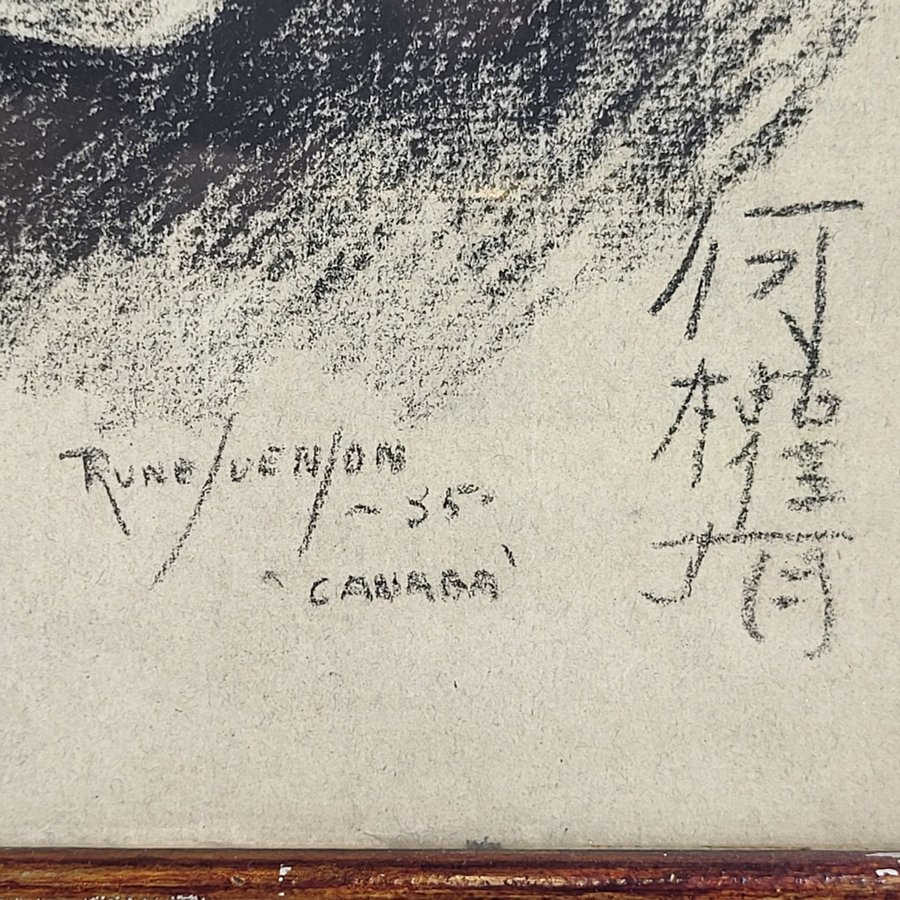 RUNE SVENSON
-35-
'CANADA'
何權